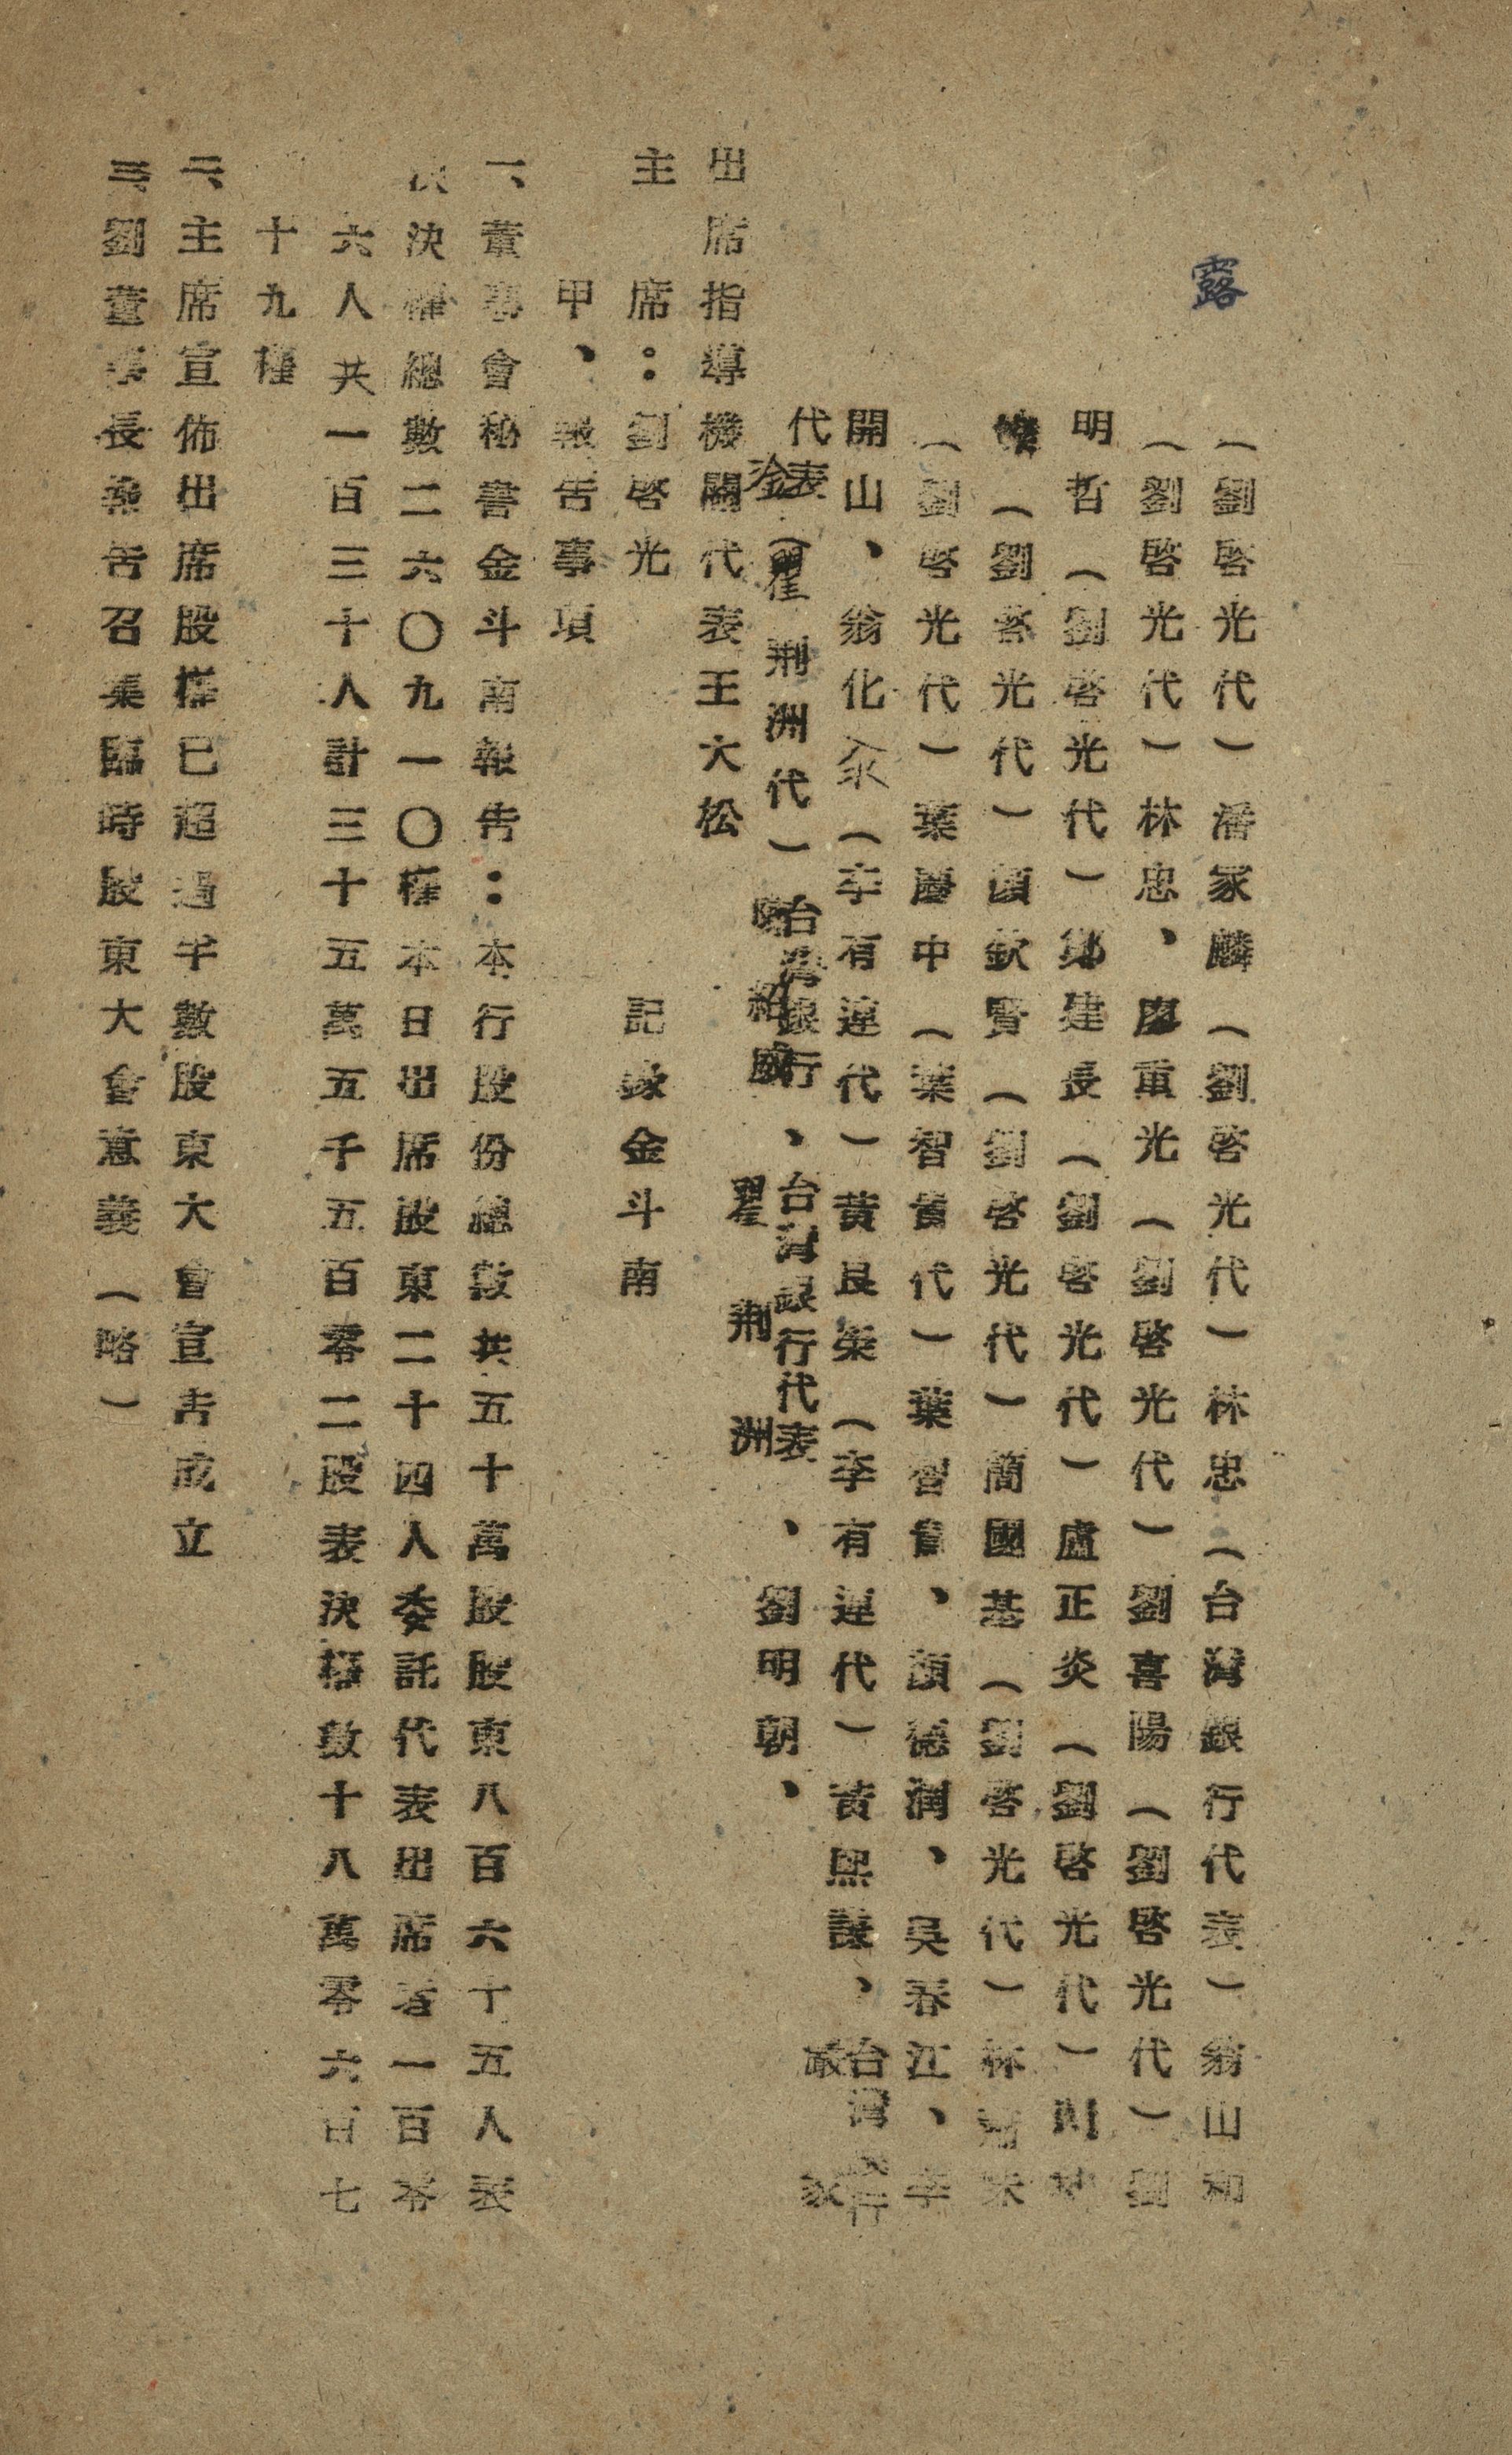 露
（劉啓光代）潘家麟（劉啓光代）林忠（台灣銀行代表）翁山和
（劉啓光代）林忠、廖重光（劉啓光代）劉喜陽（劉啓光代）劉
明哲（劉啓光代）鄭建長（劉啓光代）盧正炎（劉啓光代）
（劉啓光代）顏欽賢（劉啓光代）簡國基（劉啓光代）林
（劉啓光代）葉慶中（葉智 代）葉智 、顏德潤、吳春江、李
開山、翁化 （李有連代）黃良榮（李有連代）黃熙謨、台灣 行
代表 金 （瞿荆洲代）台灣銀行 紹 、台灣銀行代表 瞿荆洲、劉明朝、嚴家
出席指導機關代表王大松
主席：劉啓光 記錄金斗南
甲、報告事項
一、董事會秘書金斗南報告：本行股份總數共五十萬股股東八百六十五人表
決權總數二六〇九一〇權本日出席股東二十四人委託代表出席者一百零
六人共一百三十人計三十五萬五千五百零二股表決權數十八萬零六百七
十九權
二、主席宣佈出席股權已超過半數股東大會宣告成立
三、劉董事長報告召集臨時股東大會意義（略）